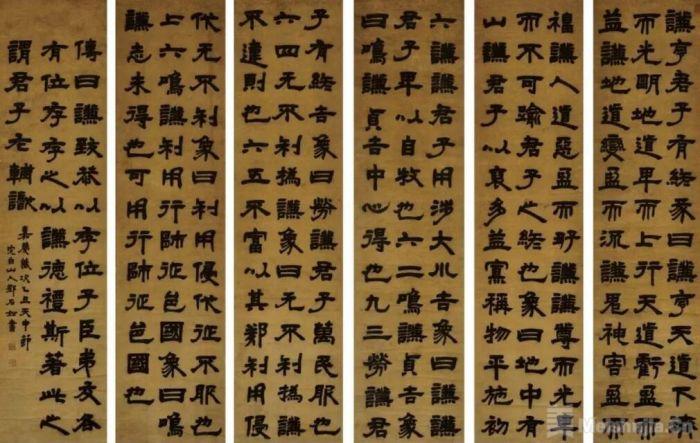 謙亨君子有終彖曰謙亨天道下濟
而光明地道卑而上行天道虧盈而
益謙地道變盈而流謙鬼神害盈而
福謙人道惡盈而好謙謙尊而光
而不可踰君子之終也象曰地中有
山謙君子以裒多益寡稱物平施初
六謙謙君子用涉大川吉象曰謙謙
君子卑以自牧也六二鳴謙貞吉象
曰鳴謙貞吉中心得也九三勞謙君
子有終吉象曰勞謙君子萬民服也
六四无不利撝謙象曰无不利撝謙
不違則也六五不富以其鄰利用侵
伐无不利象曰利用侵伐征不服也
上六鳴謙利用行師征邑國象曰鳴
謙志未得也可用行師征邑國也
傳曰謙致恭以存位子臣弟友各
有位存存之以謙德禮斯著此之
謂君子
嘉慶乙丑天中節
完白山人鄧石如書